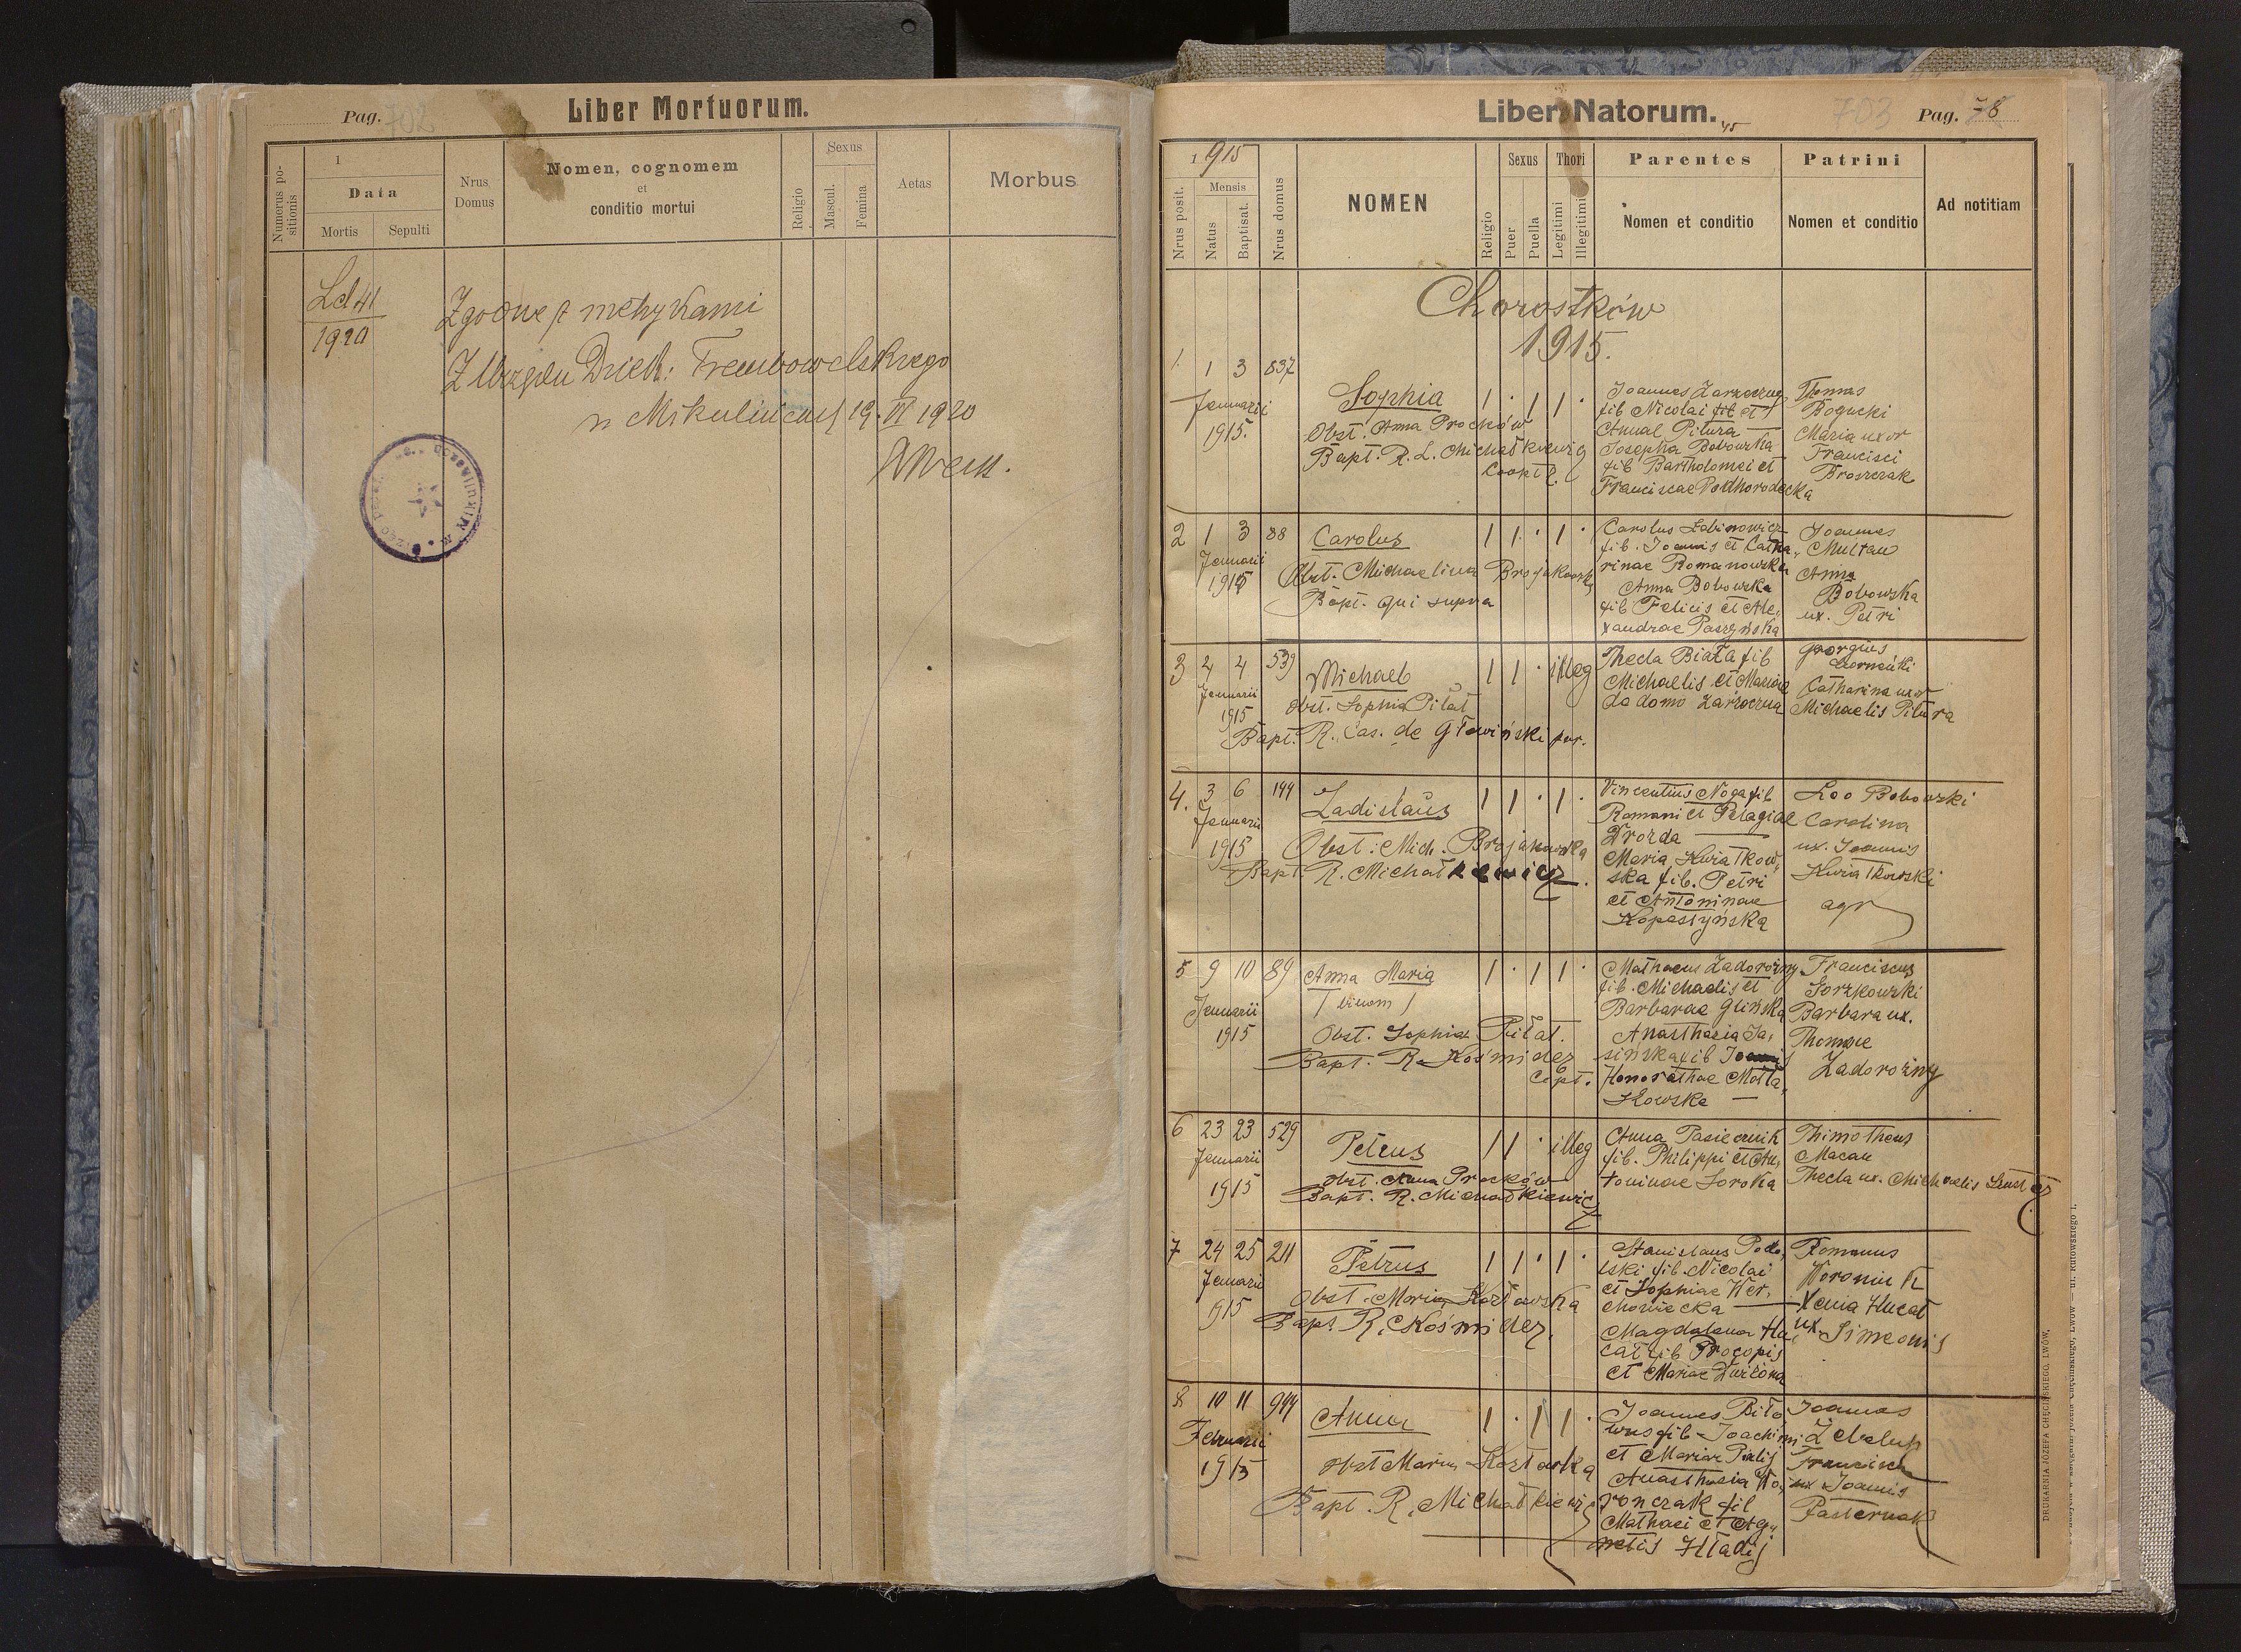 Pag. 702
Liber Mortuorum.
Numerus positionis
1
Data
Mortis
Sepulti
Nrus Domus
Nomen, cognomem
et
conditio mortui
Religio
Sexus
Mascul.
Femina
Aetas
Morbus
Ld 41
1920
Zgodne z metrykami
Z Urzędu Dziek: Trembowelskiego
w Mikulińcach 19. VI 1920
Liber Natorum.
703
Pag. 78
1915
Nrus posit.
Mensis
Natus
Baptisat.
Nrus domus
NOMEN
Religio
Sexus
Puer
Puella
Thori
Legitimi
Illegitimi
Parentes
Nomen et conditio
Patrini
Nomen et conditio
Ad notitiam
Chorostków
1915.
1. 1 3 837
Januarii
1915.
Sophia
Obst. Anna Proćków
Bapt. R. L. Michałkiewicz
Coop.
Joannes Zarzeczny
fil Nicolai et
Annae Pitura
Josepha Bobowska
fil Bartholomei et
Franciscae Podhorodecka
Thomas
Bogucki
Maria uxor
Francisci
Broszczak
2 1 3 88
Januarii
1915
Carolus
Obst. Michaelina Brojakowska
Bapt. qui supra
Carolus Sabinowicz
fil. Joannis et Catha,
rinae Romanowska
Anna Bobowska
fil Felicis et Ale,
xandrae Paszyńska
Joannes
Multan
Anna
Bobowska
ux. Petri
3 4 4 539
Januarii
1915
Michael
illeg
Obst. Sophia Piłat
Bapt. R. Cas. de Głowiński par.
Thecla Biała fil
Michaelis et Mariae
de domo Zarzeczna
Georgius
Catharina uxor
Michaelis Pitura
4. 3 6 144
Januarii
1915
Ladislaus
Obst: Mich. Brojakowska
Bapt. R. Michałkiewicz.
Vincentius Noga fil
Romani et Pelagiae
Drozda
Maria Kwiatkow,
ska fil. Petri
et Antoninae
Kopestyńska
Leo Bobowski
Carolina
ux. Joannis
Kwiatkowski
agr
5 9 10 89
Januarii
1915
Anna Maria
/ binom /
Obst. Sophia Piłat.
Bapt. R. Kośmider
Copt.
Mathaeus Zadorożny
fil. Michaelis et
Barbarae Glińska
Anasthasia Ja,
sińska fil Joannis
Honorathae Motła,
kowska
Franciscus
Gorzkowski
Barbara ux.
Thomae
Zadorożny
6 23 23 529
Januarii
1915
Petrus
illeg
Obst. Anna Proćków
Bapt. R. Michałkiewicz
Anna Pasiecznik
fil. Philippi et An,
toninae Soroka
Thimotheus
Macan
Thecla ux. Michaelis
7 24 25 211
Januarii
1915
Petrus
Obst. Maria Kozłowska
Bapt R. Kośmider.
Stanislaus Podo,
lski fil. Nicolai
et Sophiae Wer,
chowiecka
Magdalena Hu,
cał fil Procopis
et Mariae
Romanus
Woroniuk
Xenia Hucał
ux. Simeonis
8 10 11 944
Februarii
1915
Anna
Obst Maria Kozłowska
Bapt. R. Michałkiewicz
Joannes Biło
wus fil. Joachimi
et Mariae
Anasthasia Wo,
ronczak fil
Mathaei et Ag,
netis Hładij
Joannes
Francisca
ux Joannis
Pasternak
DRUKARNIA JÓZEFA CHĘCIŃSKIEGO, LWÓW,